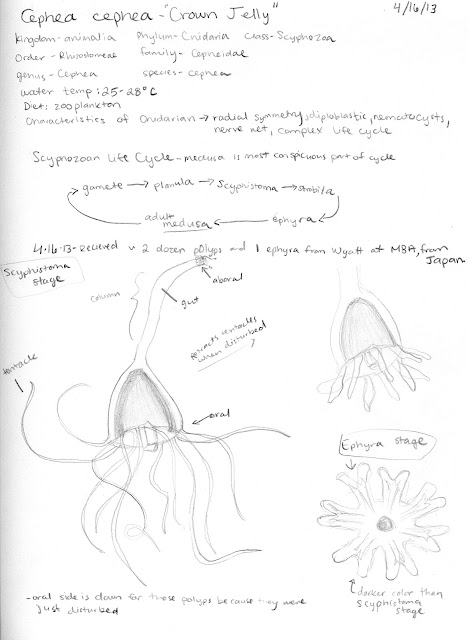 Cephea cephea - "Crown Jelly"
4/16/13
Kingdom - animalia Phylum - Cnidaria Class - Scyphozoa
Order - Rhizostomeae family - Cepheidae
genus - Cephea species - cephea
water temp: 25-28°C
Diet: zooplankton
Characteristics of Cnidarian → radial symmetry, diploblastic, nematocysts,
nerve net, complex life cycle
Scyphozoan Life Cycle - medusa is most conspicuous part of cycle
gamete → planula → Scyphistoma → strobila
adult
medusa ← ephyra
4-16-13 - recieved ~ 2 dozen polyps and 1 ephyra from Wyatt at MBA, from
Japan
Scyphistoma
stage
aboral
column
gut
retracts tentacles
when disturbed
tentacle
oral
Ephyra stage
darker color then
scyphistoma
stage
- oral side is down for these polyps because they were
just disturbed